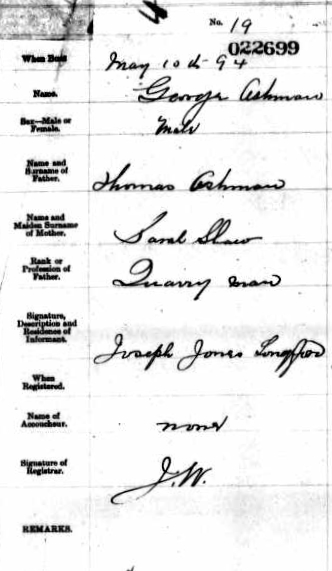 No. 19
022699
When Born
May 10th 94
Name.
George Ashman
Sex—Male or
Female.
Male
Name and
Surname of
Father.
Thomas Ashman
Name and
Maiden Surname
of Mother.
Sarah Shaw
Rank or
Profession of
Father.
Quarry man
Signature,
Description and
Residence of
Informant.
Joseph Jones Longford
When
Registered.
Name of
Accoucheur.
none
Signature of
Registrar.
J.W.
REMARKS.